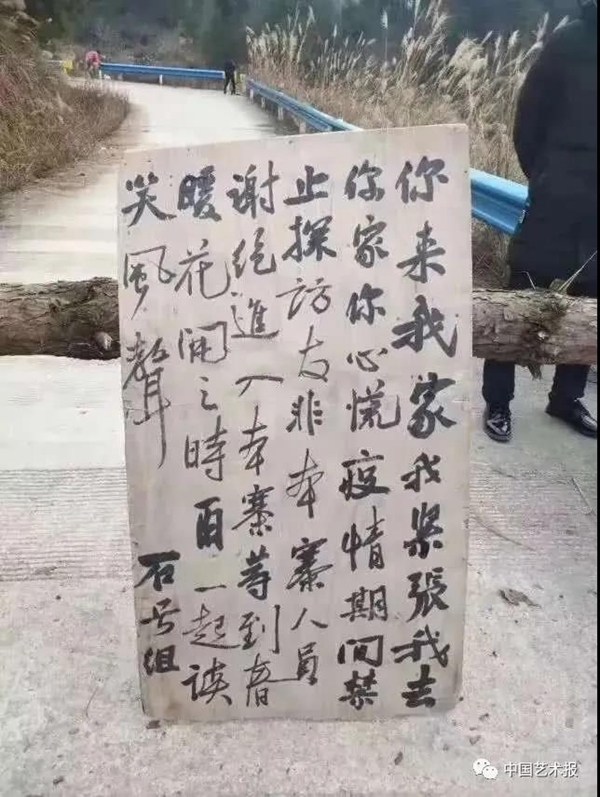 你来我家我紧張我去
你家你心慌疫情期间禁
止探訪友非本寨人員
谢绝進入本寨等到春
暖花開之時再一起谈
笑風聲
石号组
中国艺术报